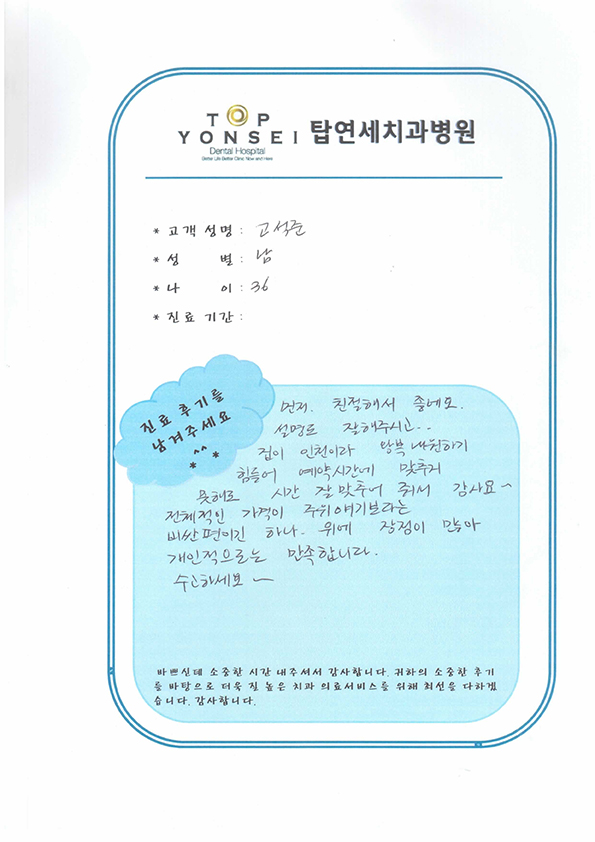 TOP
YONSEI 탑연세치과병원
Dental Hospital
Better Life Better Clinic Now and Here
* 고객 성명 : 고석준
* 성 별 : 남
* 나 이 : 36
* 진료 기간 :
진료 후기를
남겨주세요
^^
* *
먼저. 친절해서 좋에요.
설명도 잘해주시고..
집이 인천이라 왕복 내원하기
힘들어 예약시간에 맞추지
못해도 시간 잘 맞추어 줘서 감사요~
전체적인 가격이 주위얘기보다는
비싼편이긴 하나. 위에 장점이 많아
개인적으로는 만족합니다.
수고하세요~
바쁘신데 소중한 시간 내주셔서 감사합니다. 귀하의 소중한 후기
를 바탕으로 더욱 질 높은 치과 의료서비스를 위해 최선을 다하겠
습니다. 감사합니다.